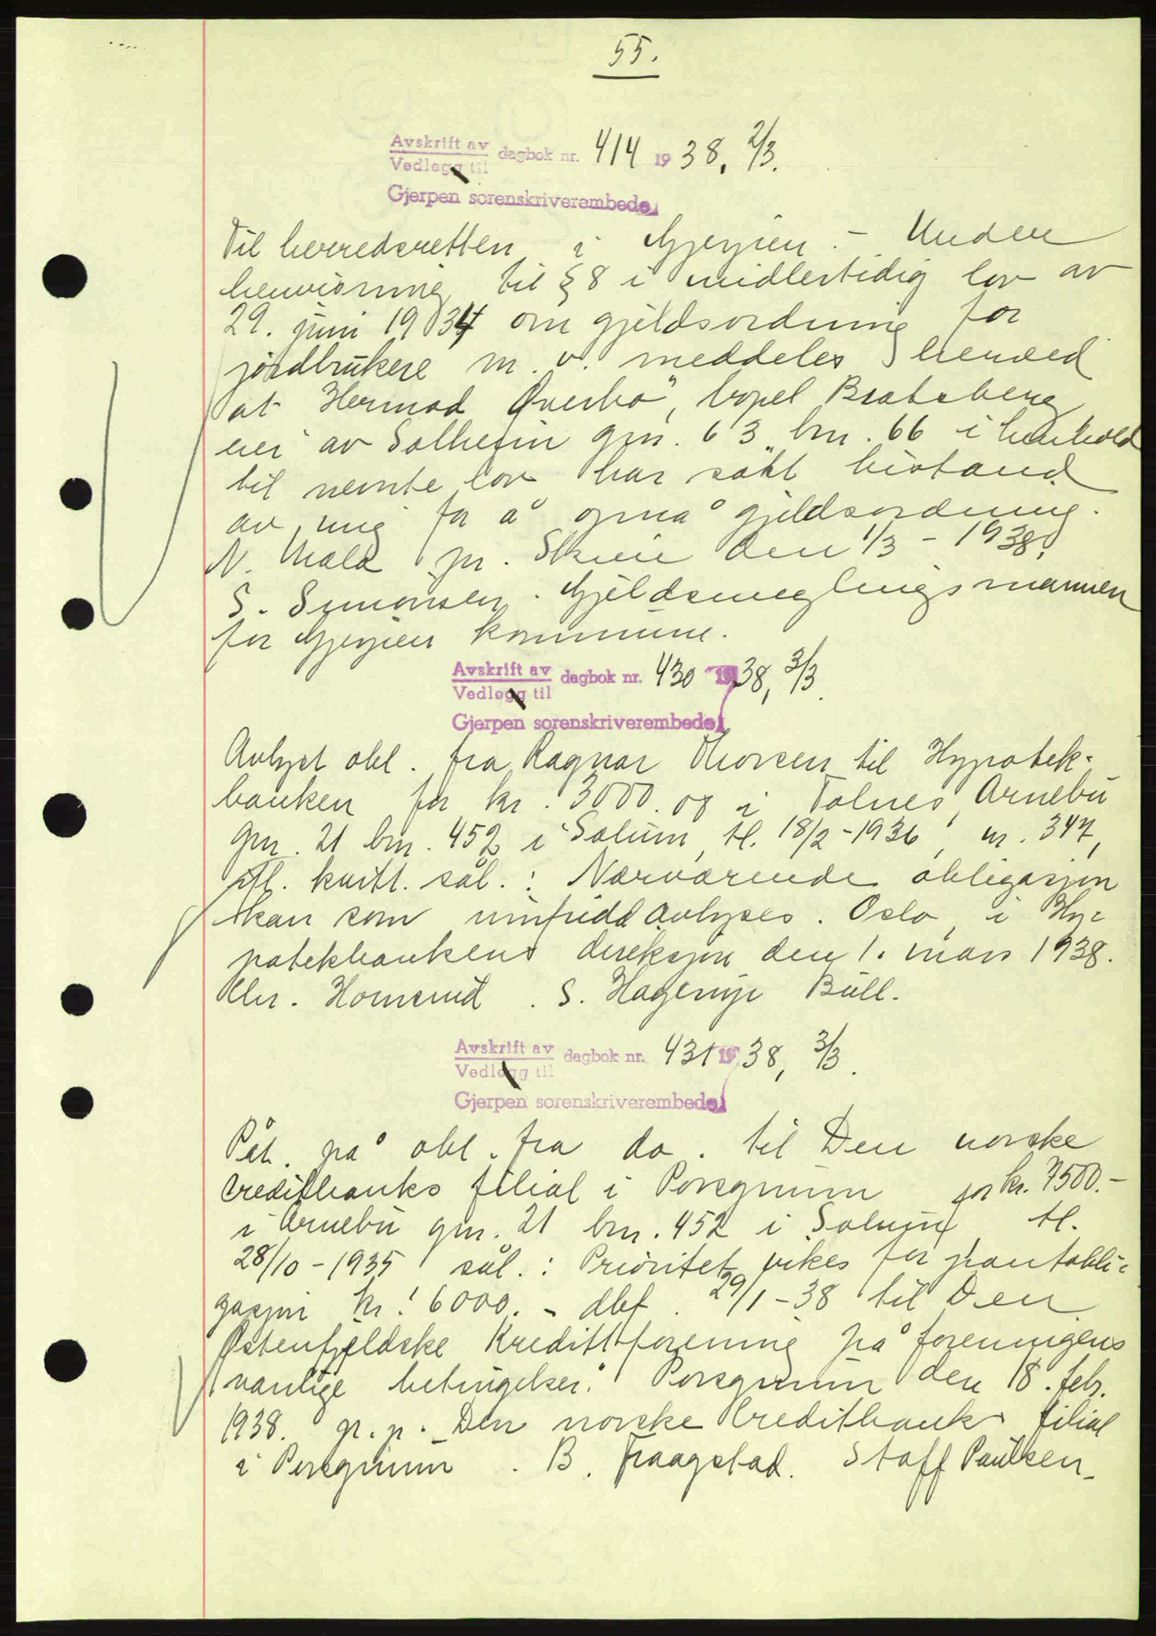 55.
Avskrift av
Vedlegg til dagbok nr. 414 1938, 2/3.
Gjerpen sorenskriverembede
Til herredsretten i Gjerpen. - Under
henvisning til § 8 i midlertidig lov av
29. juni 1934 om gjeldsordning for
jordbrukere m. v. meddeles herved
at Hermod Överbö, bopel Bratsberg
eier av Solheim gnr. 63 bnr. 66 i henhold
til nevnte lov har søkt bistand
av mig for å opnå gjeldsordning.
N. Mæla pr. Skien den 1/3 - 1938.
S. Simonsen. Gjeldsmeglingsmannen
for Gjerpen kommune.
Avskrift av
Vedlegg til dagbok nr. 430 1938, 3/3.
Gjerpen sorenskriverembede
Avlyst obl. fra Ragnar Thorsen til Hypotek-
banken for kr. 3000. og i Tolnes, Arnebu
gnr. 21 bnr. 452 i Solum, tl. 18/2-1936, nr. 347,
kvitt. sål.: Nærværende obligasjon
kan som innfridd avlyses. Oslo, i Hy-
potekbankens direksjon den 1. mars 1938.
Chr. Hornsrud. S. Hagerup Bull.
Avskrift av
Vedlegg til dagbok nr. 431 1938, 3/3.
Gjerpen sorenskriverembede
Påt. på obl. fra do. til Den norske
Creditbanks filial i Porsgrunn for kr. 7500.-
i Arnebu gnr. 21 bnr. 452 i Solum tl.
28/10-1935 sål.: Prioritet vikes for pantobli-
gasjon kr. 6000.- dat. 29/1-38 til Den
Østenfjeldske Kredittforening på foreningens
vanlige betingelser. Porsgrunn den 18. feb.
1938. p. p. Den norske Creditbank filial
i Porsgrunn. B. Traagstad. Staff Paulsen.